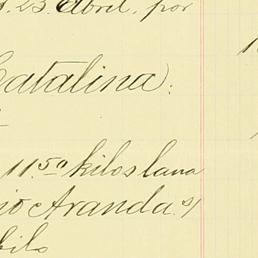 23 Abril, por
Catalina:
11.50 kilos lana
Aranda. s/
kilo